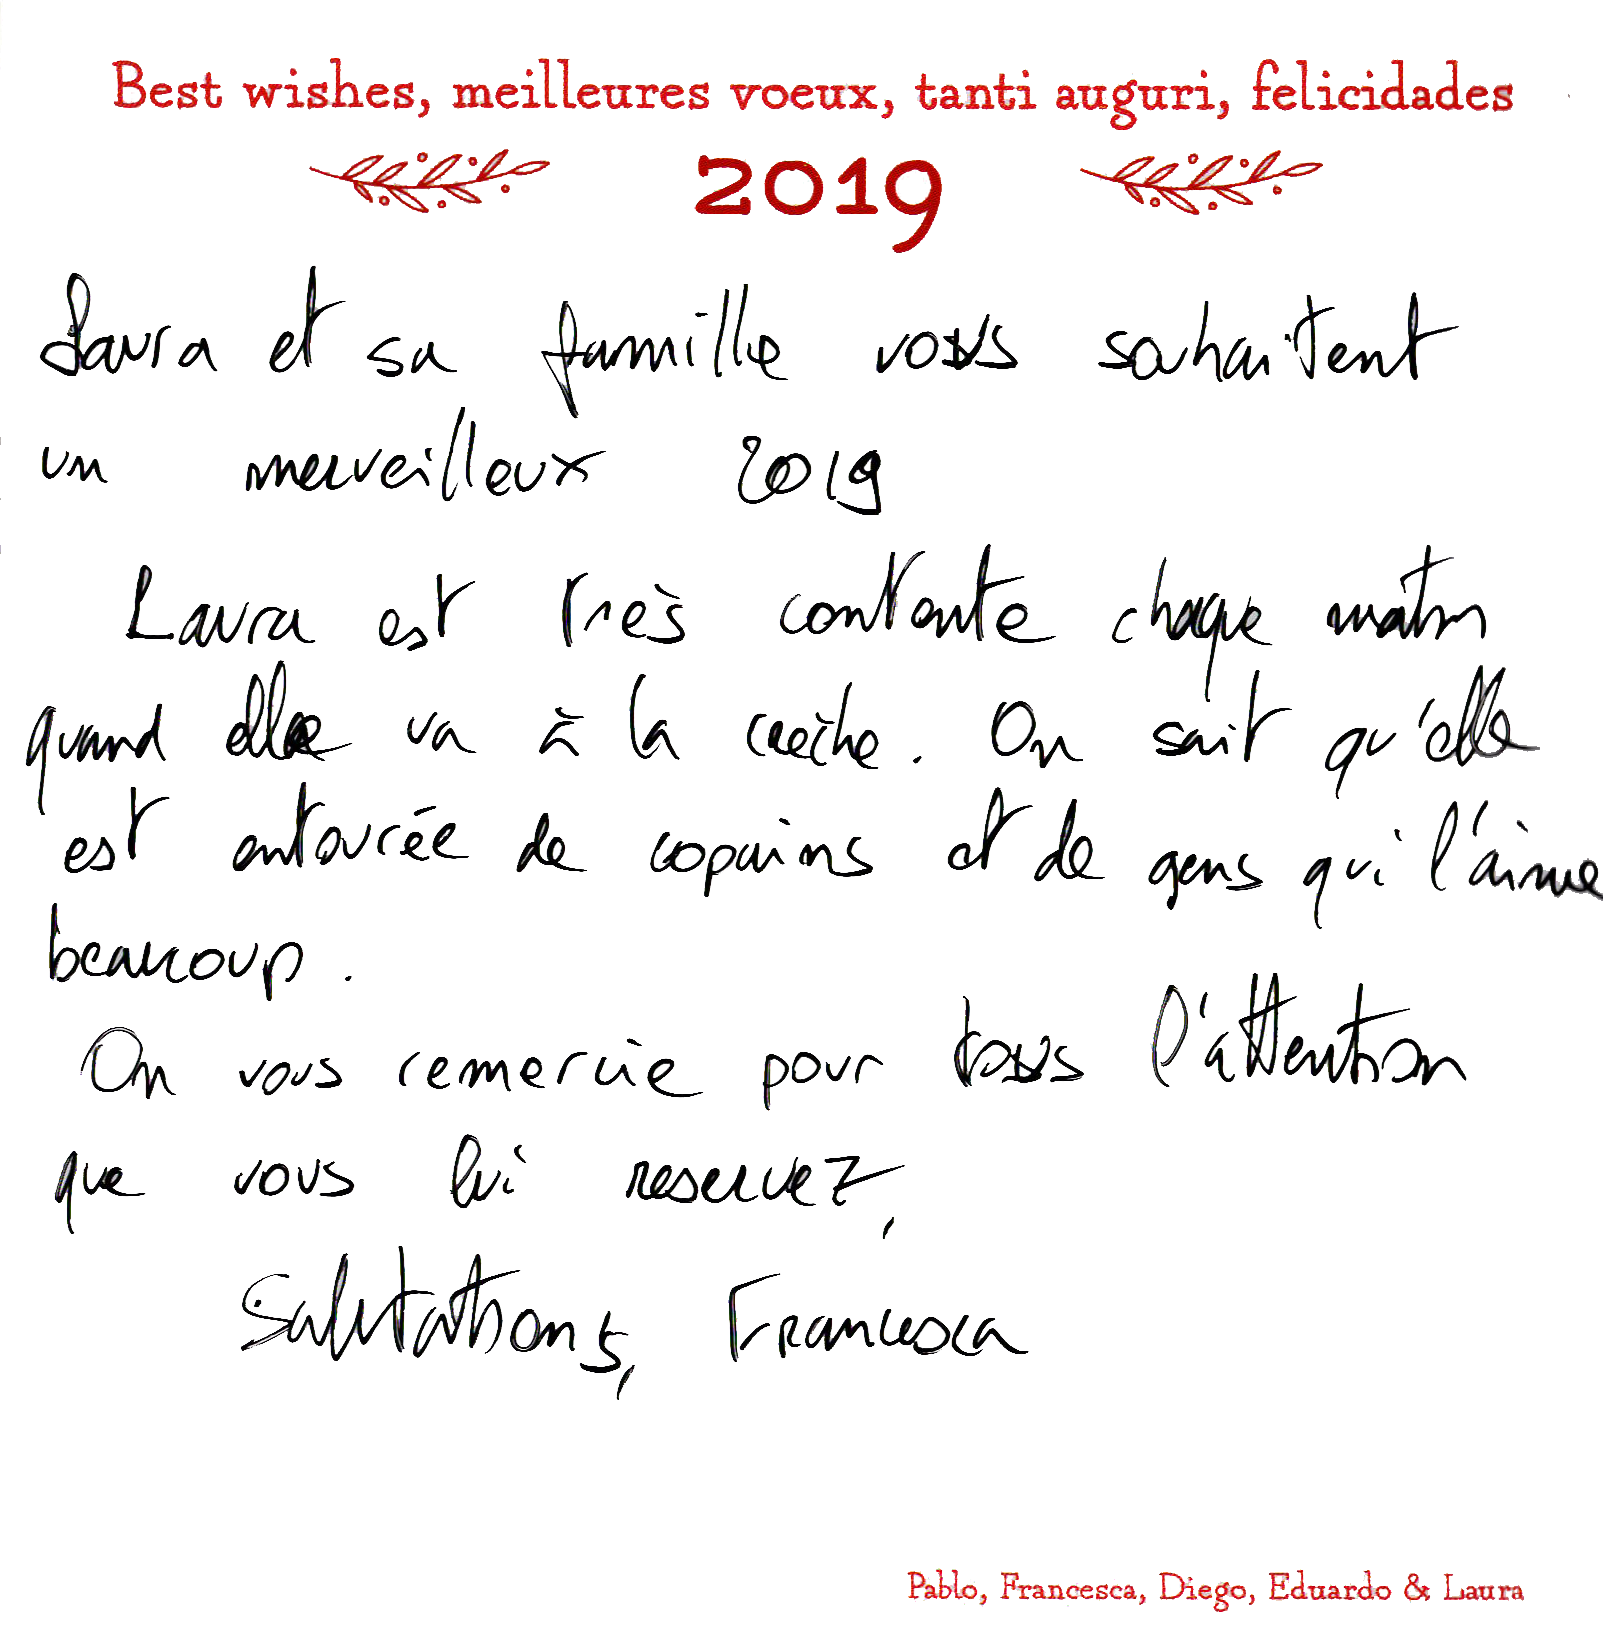 Best wishes, meilleures voeux, tanti auguri, felicidades
2019
Laura et sa famille vous souhaitent
un merveilleux 2019
Laura est très contente chaque matin
quand elle va à la crèche. On sait qu'elle
est entourée de copains et de gens qui l'aime
beaucoup.
On vous remercie pour tous l'attention
que vous lui reservez,
Salutations, Francesca
Pablo, Francesca, Diego, Eduardo & Laura